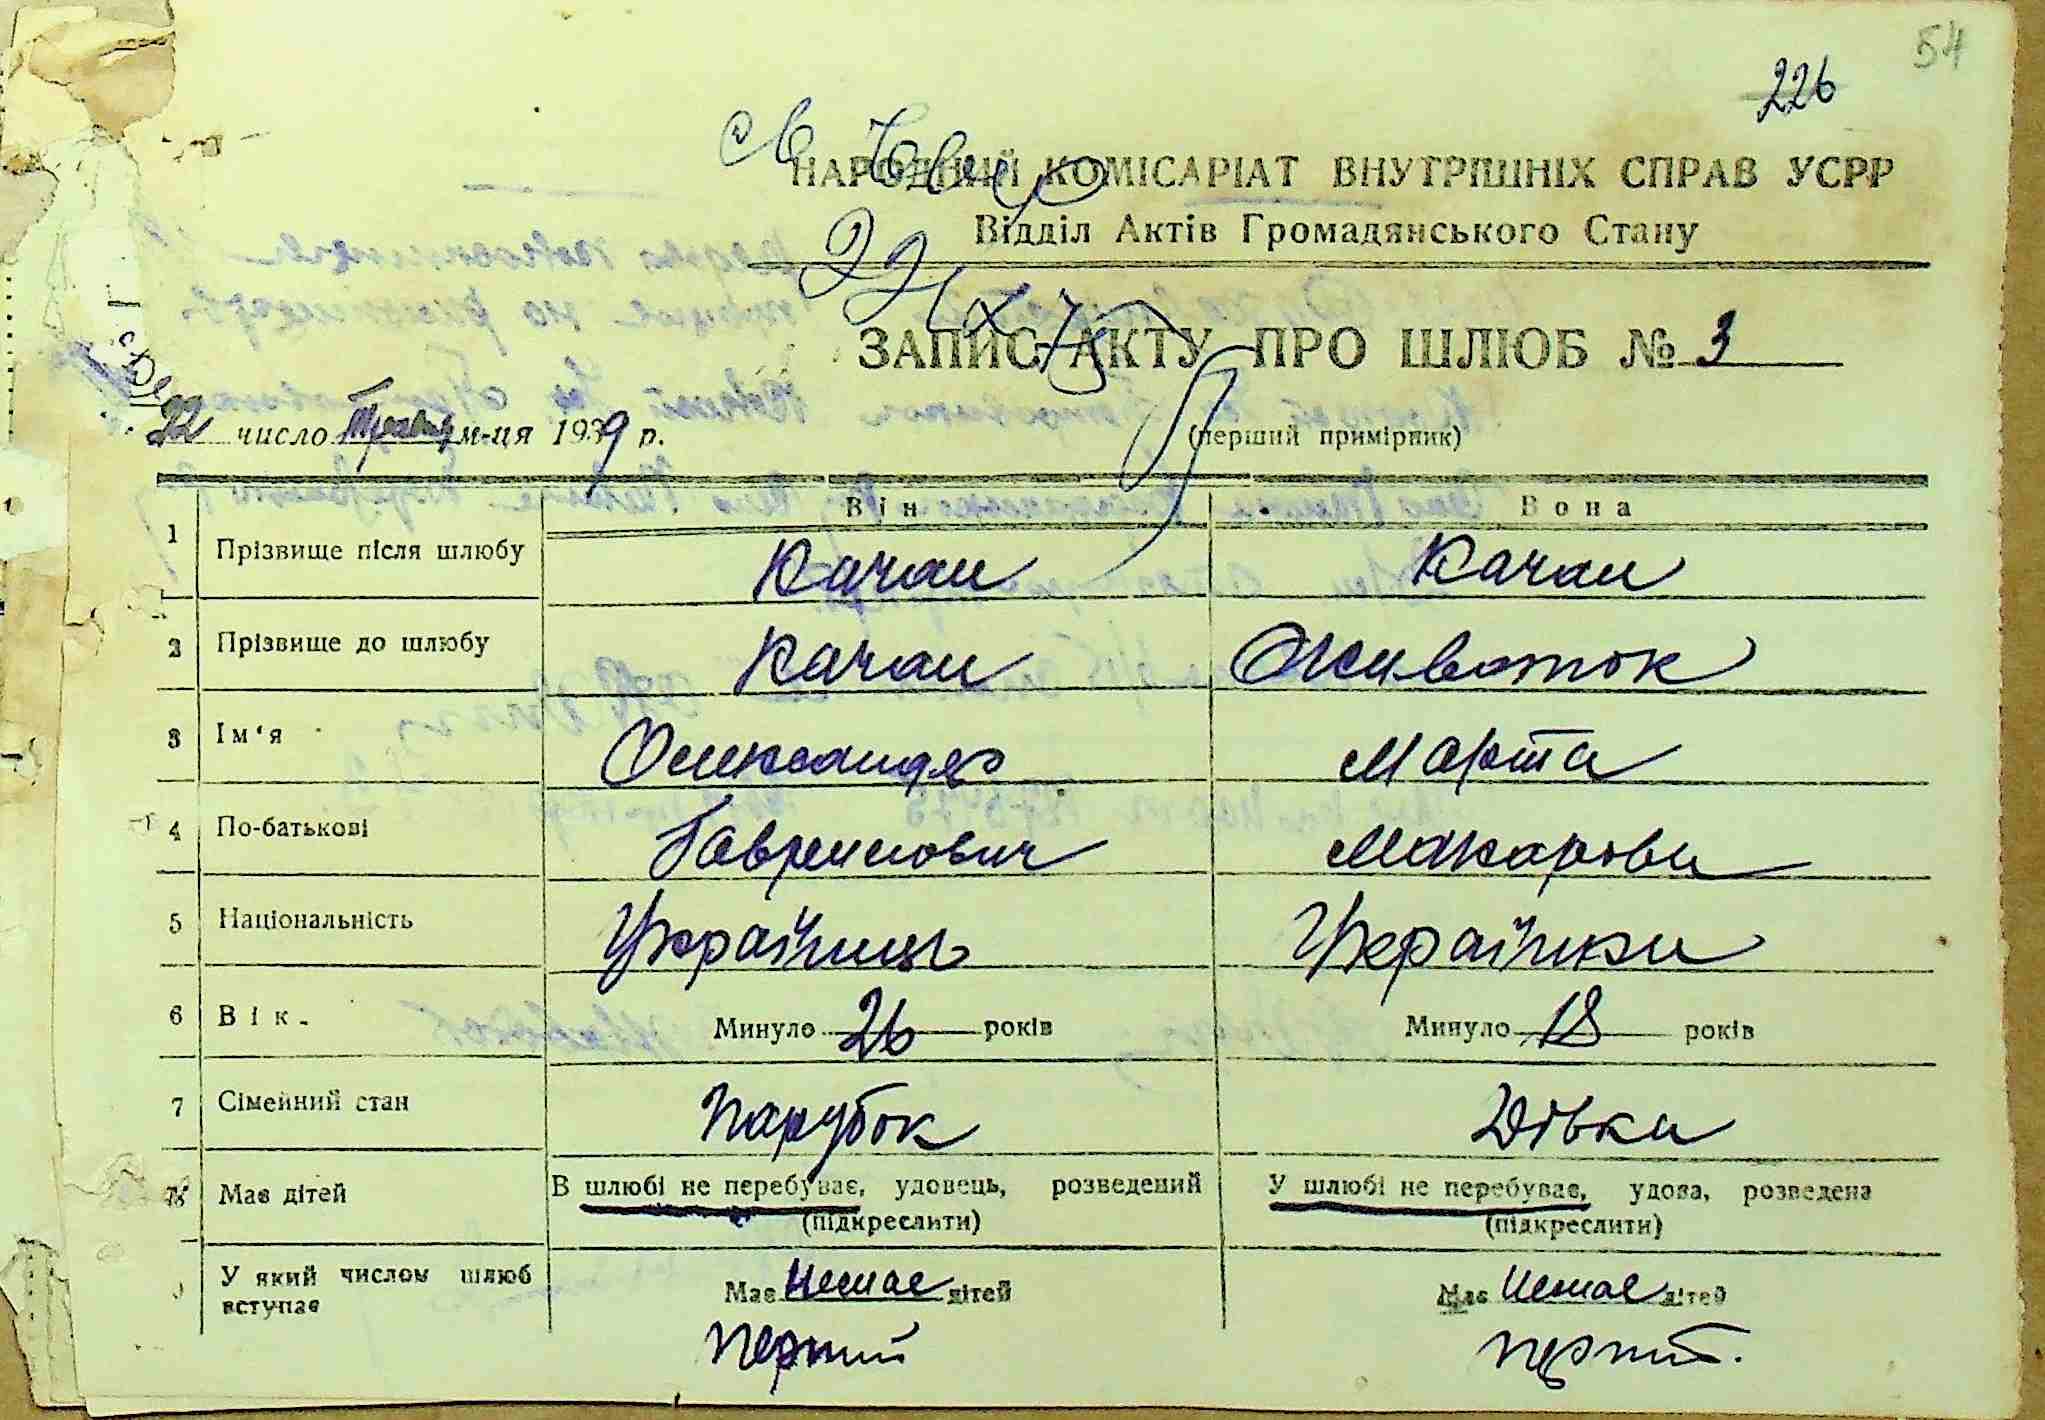 54
226
НАРОДНИЙ КОМІСАРІАТ ВНУТРІШНІХ СПРАВ УСРР
Відділ Актів Громадянського Стану
ЗАПИС АКТУ ПРО ШЛЮБ № 3
22 число Травня м-ця 1939 р.
(перший примірник)
Він Вона
1 Прізвище після шлюбу Качан Качан
2 Прізвище до шлюбу Качан Животок
3 Ім'я Олександр Марта
4 По-батькові Гаврилович Макарови
5 Національність Українець Українка
6 Вік. Минуло 26 років Минуло 18 років
7 Сімейний стан Парубок Дівка
Має дітей В шлюбі не перебуває, удовець, розведений У шлюбі не перебуває, удова, розведена
(підкреслити) (підкреслити)
У який числом шлюб вступає Має немає дітей Має немає дітей
перший перший.